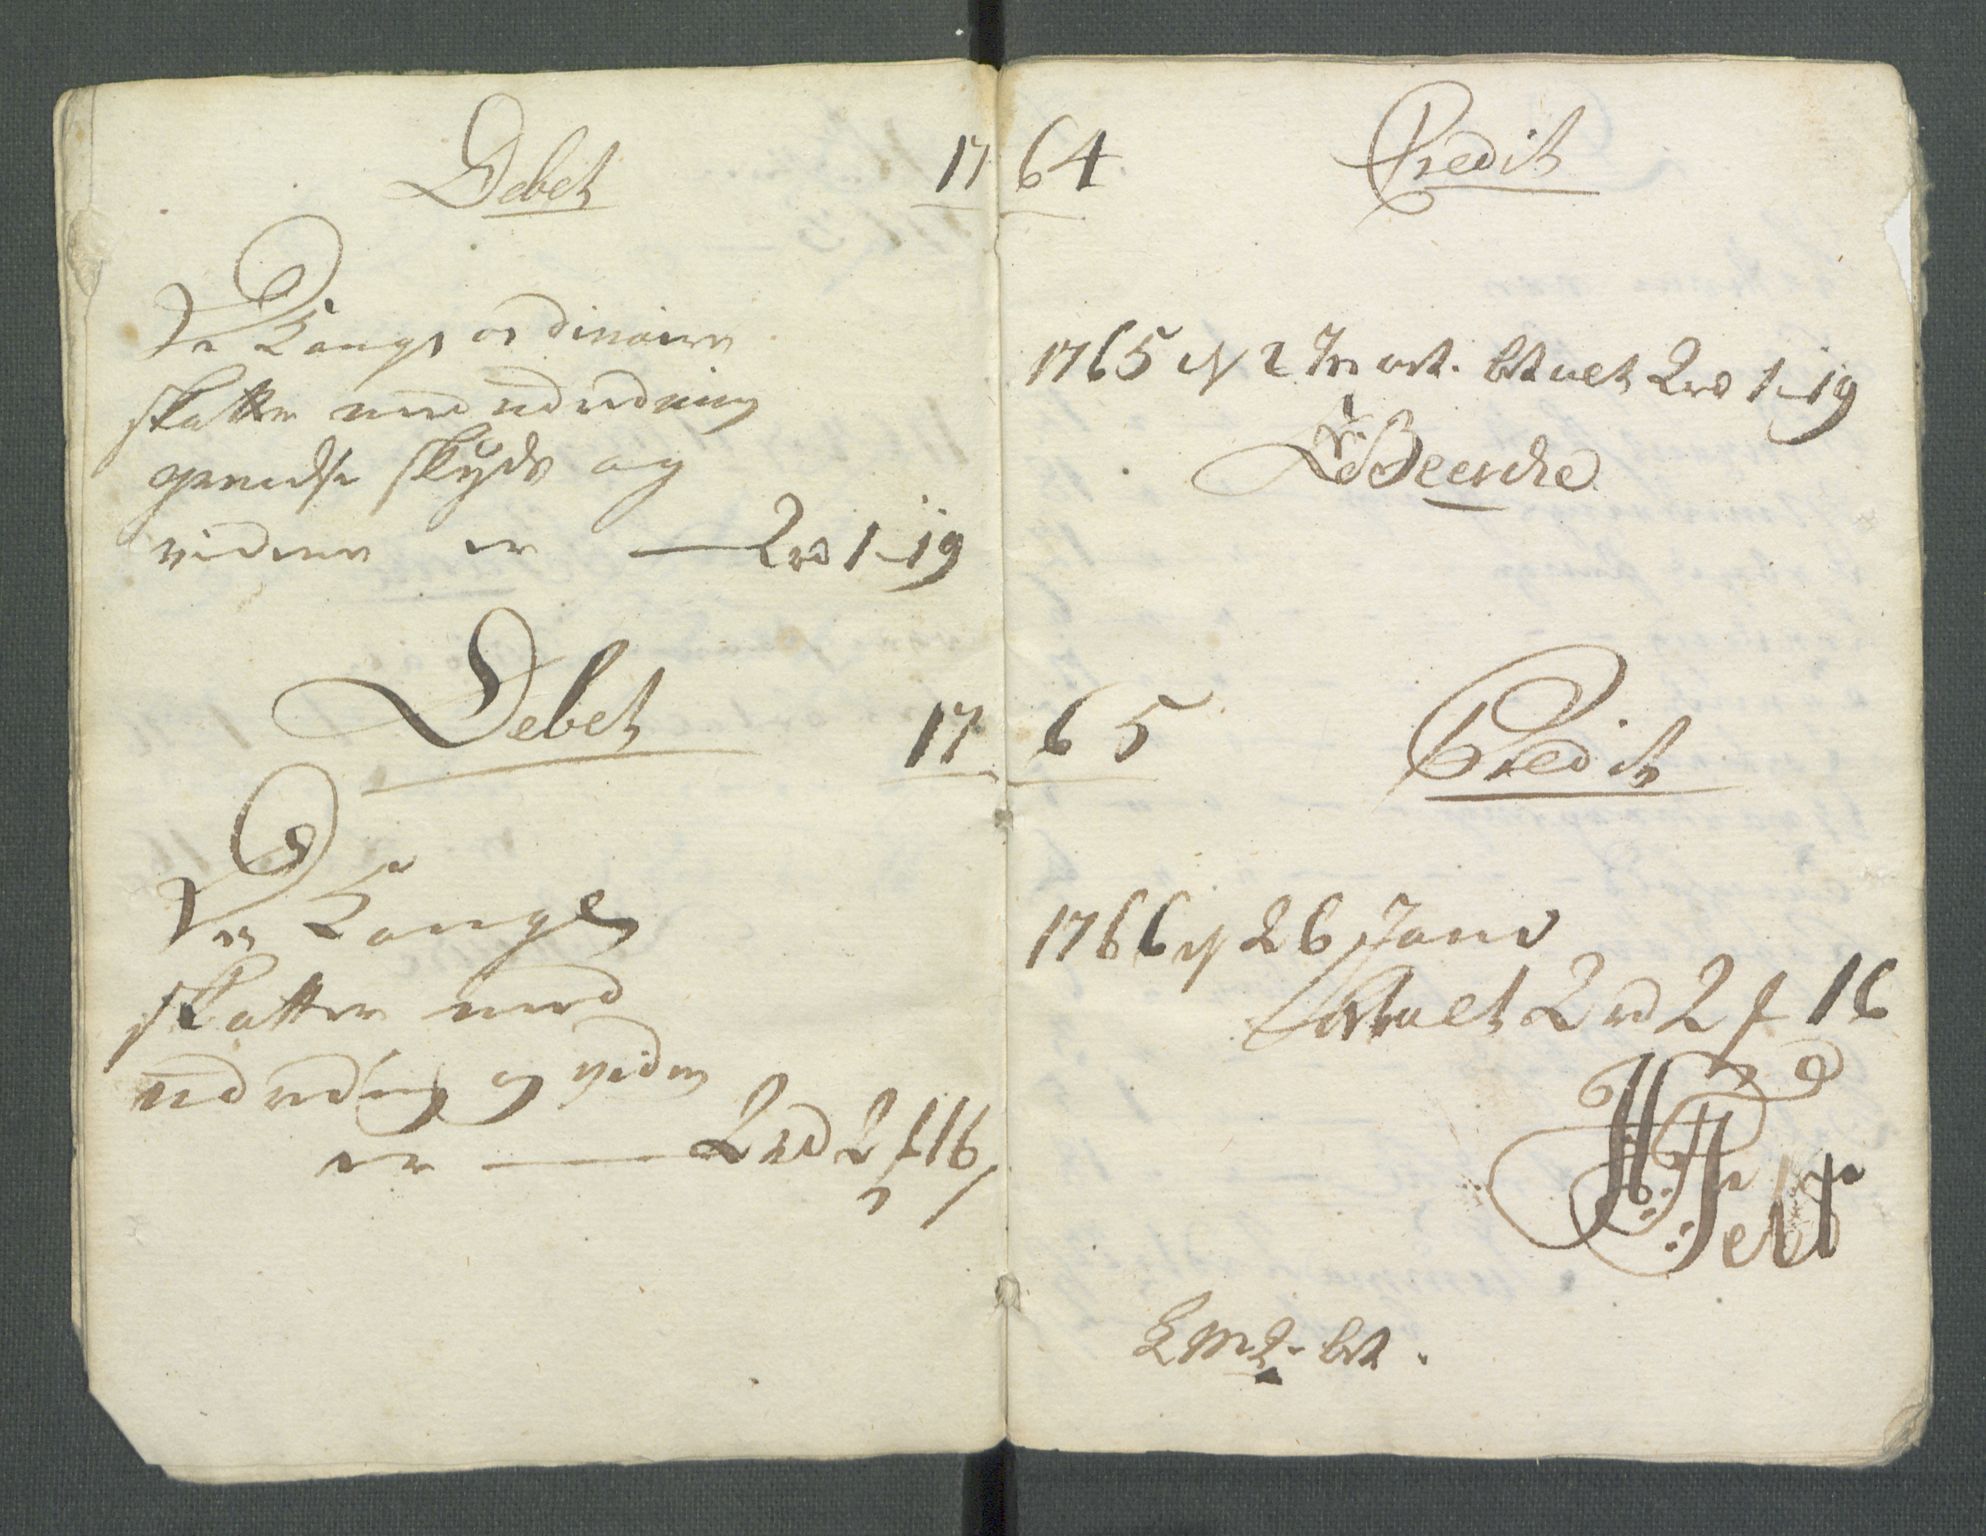 Debet 1764 Credit
De Kongl ordinaire
skatter med udredning
grændse skyds og
videre er — 2rd 1-19
1765 d 2 Mart. betalt 2rd 1-19
Debet 1765 Credit
De Kongl
skatter med
udreding og viden
er — 2rd 2 f 16
1766 d 26 Janv
betalt 2rd 2 f 16
bet.